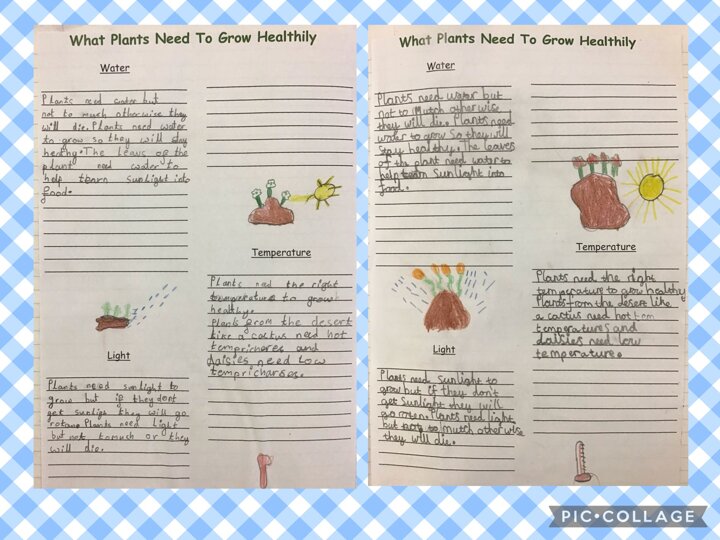 What Plants Need To Grow Healthily
Water
Plants need water but
not to much otherwise they
will die. Plants need water
to grow so they will stay
healthy. The leavs of the
plant need water to
help tearn sunlight into
food.
Light
Plants need sunlight to
grow but if they dont
get sunligs they will go
rotane. Plants need light
but not tomuch or they
will die.
Temperature
Plants need the right
temperature to grow
healthy.
Plants from the desert
like a cactus need hot
temprichores and
daisies need low
temprichorses.
What Plants Need To Grow Healthily
Water
Plants need water but
not to mutch otherwise
they will die. Plants need
water to grow so they will
stay healthy. The leaves
of the plant need water to
help tearn sunlight into
food.
Light
Plants need sunlight to
grow but if they don't
get sunlight they will
go Plants need light
but to mutch otherwise
they will die.
Temperature
Plants need the right
temperature to grow healthy
Plants from the desert like
a cactus need hot
temperatures and
daisies need low
temperature.
PIC•COLLAGE